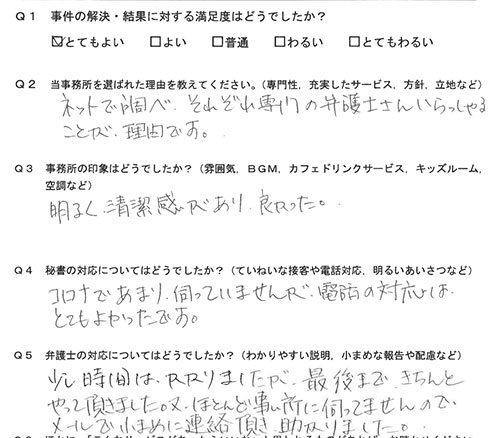 Ｑ１　事件の解決・結果に対する満足度はどうでしたか？
☑とてもよい　□よい　□普通　□わるい　□とてもわるい
Ｑ２　当事務所を選ばれた理由を教えてください。（専門性，充実したサービス，方針，立地など）
ネットで調べ、それぞれ専門の弁護士さんいらっしゃる
ことが、理由です。
Ｑ３　事務所の印象はどうでしたか？（雰囲気，ＢＧＭ，カフェドリンクサービス，キッズルーム，
空調など）
明るく、清潔感があり、良かった。
Ｑ４　秘書の対応についてはどうでしたか？（ていねいな接客や電話対応，明るいあいさつなど）
コロナであまり、伺っていませんが、電話の対応は、
とてもよかったです。
Ｑ５　弁護士の対応についてはどうでしたか？（わかりやすい説明，小まめな報告や配慮など）
少し時間は、かかりましたが、最後まで、きちんと
やって頂きました。又、ほとんど事ム所に伺ってませんので、
メールで小まめに連絡頂き、助かりました。